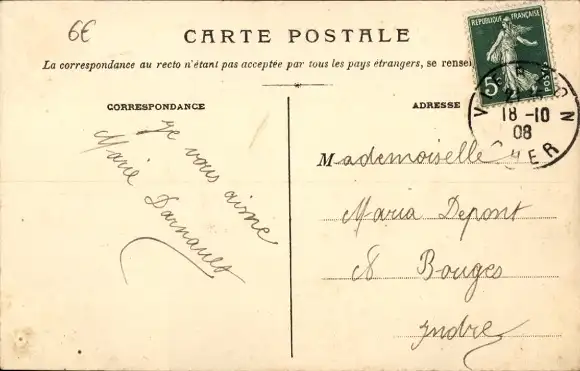 6€
CARTE POSTALE
La correspondance au recto n'étant pas acceptée par tous les pays étrangers, se rensei
REPUBLIQUE FRANÇAISE
5
POSTES
18 -10
08
CHER
CORRESPONDANCE
ADRESSE
Je vous aime
Marie Darnault
Mademoiselle
Maria Depont
à Bouges
Indre